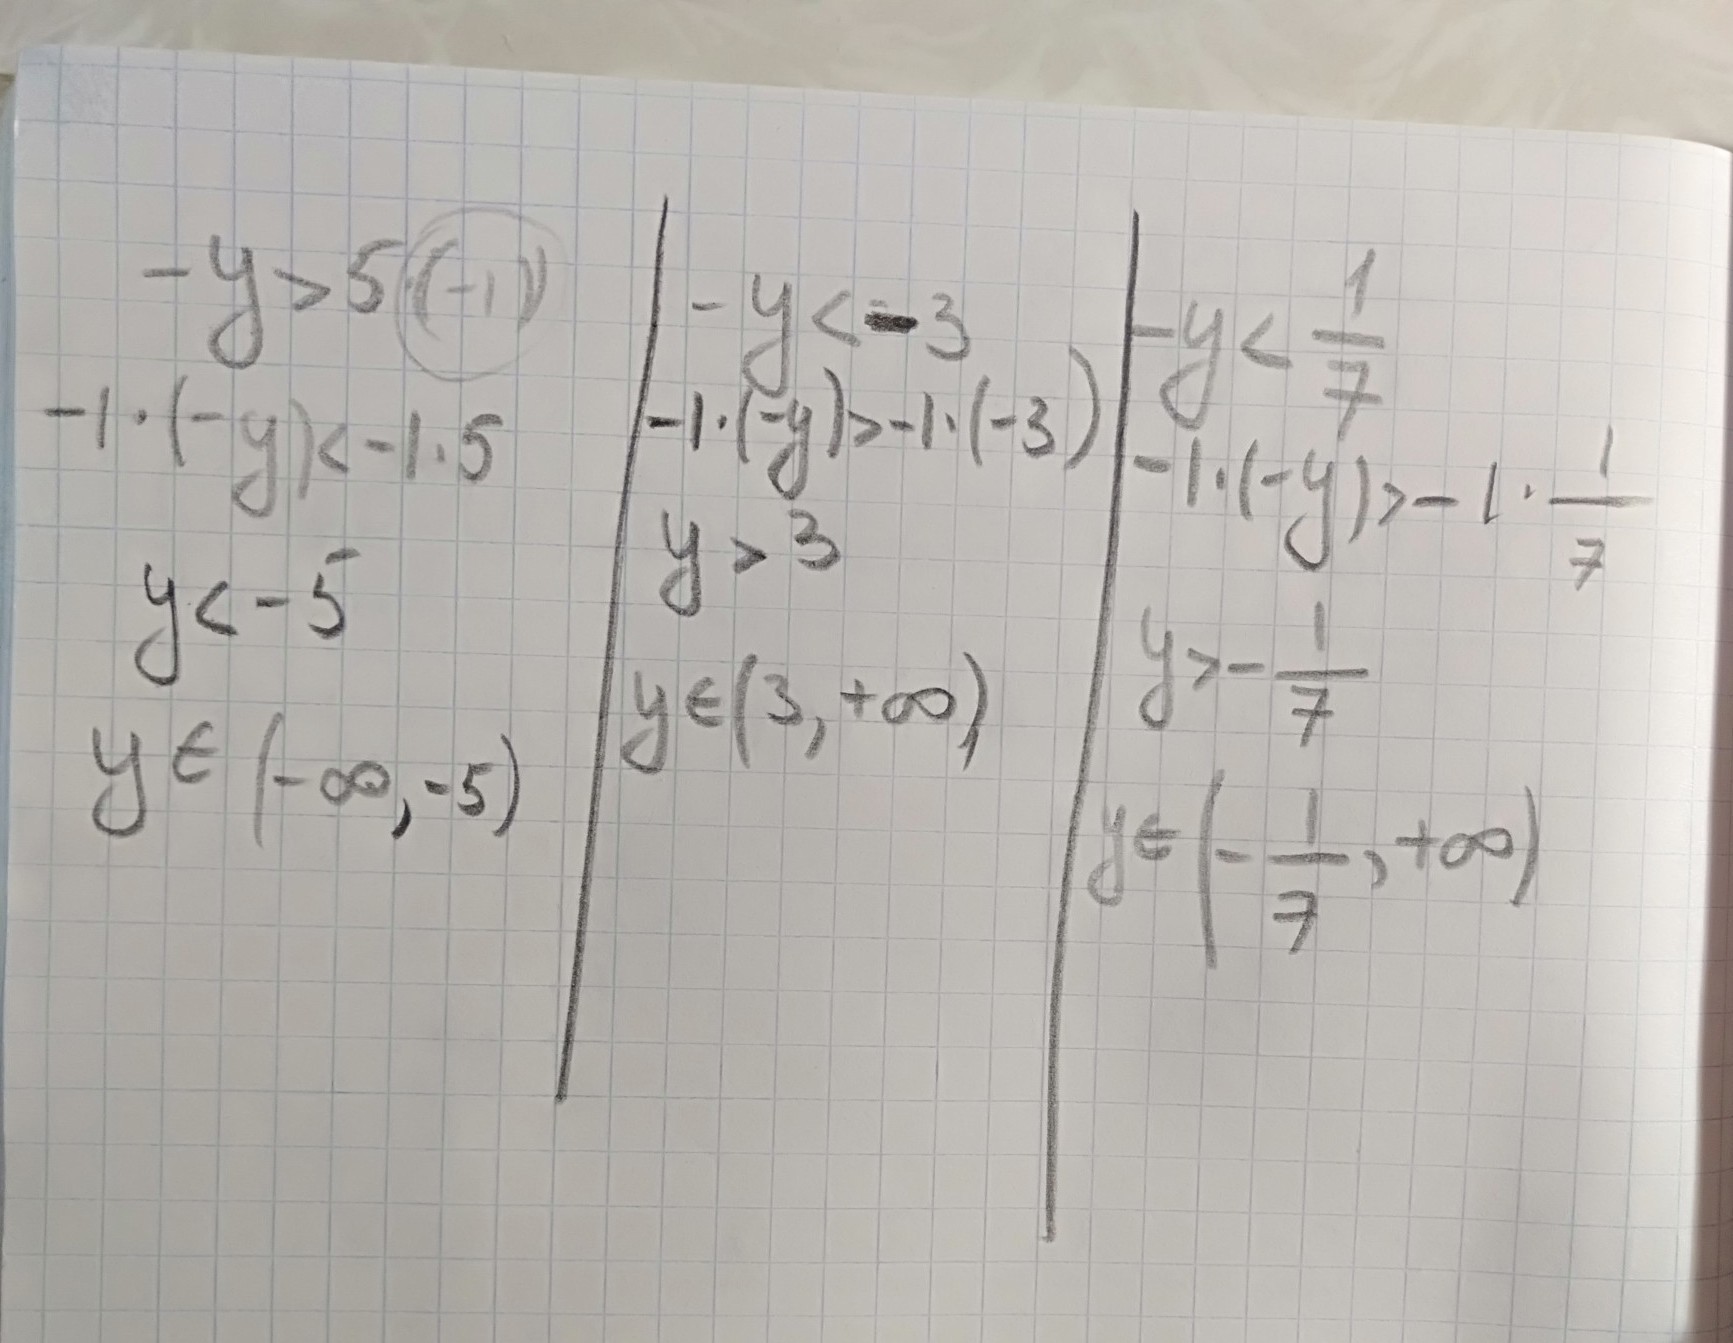 -y > 5 · (-1)
-1 · (-y) < -1 · 5
y < -5
y ∈ (-∞, -5)
-y < -3
-1 · (-y) > -1 · (-3)
y > 3
y ∈ (3, +∞)
-y < 1/7
-1 · (-y) > -1 · 1/7
y > -1/7
y ∈ (-1/7, +∞)